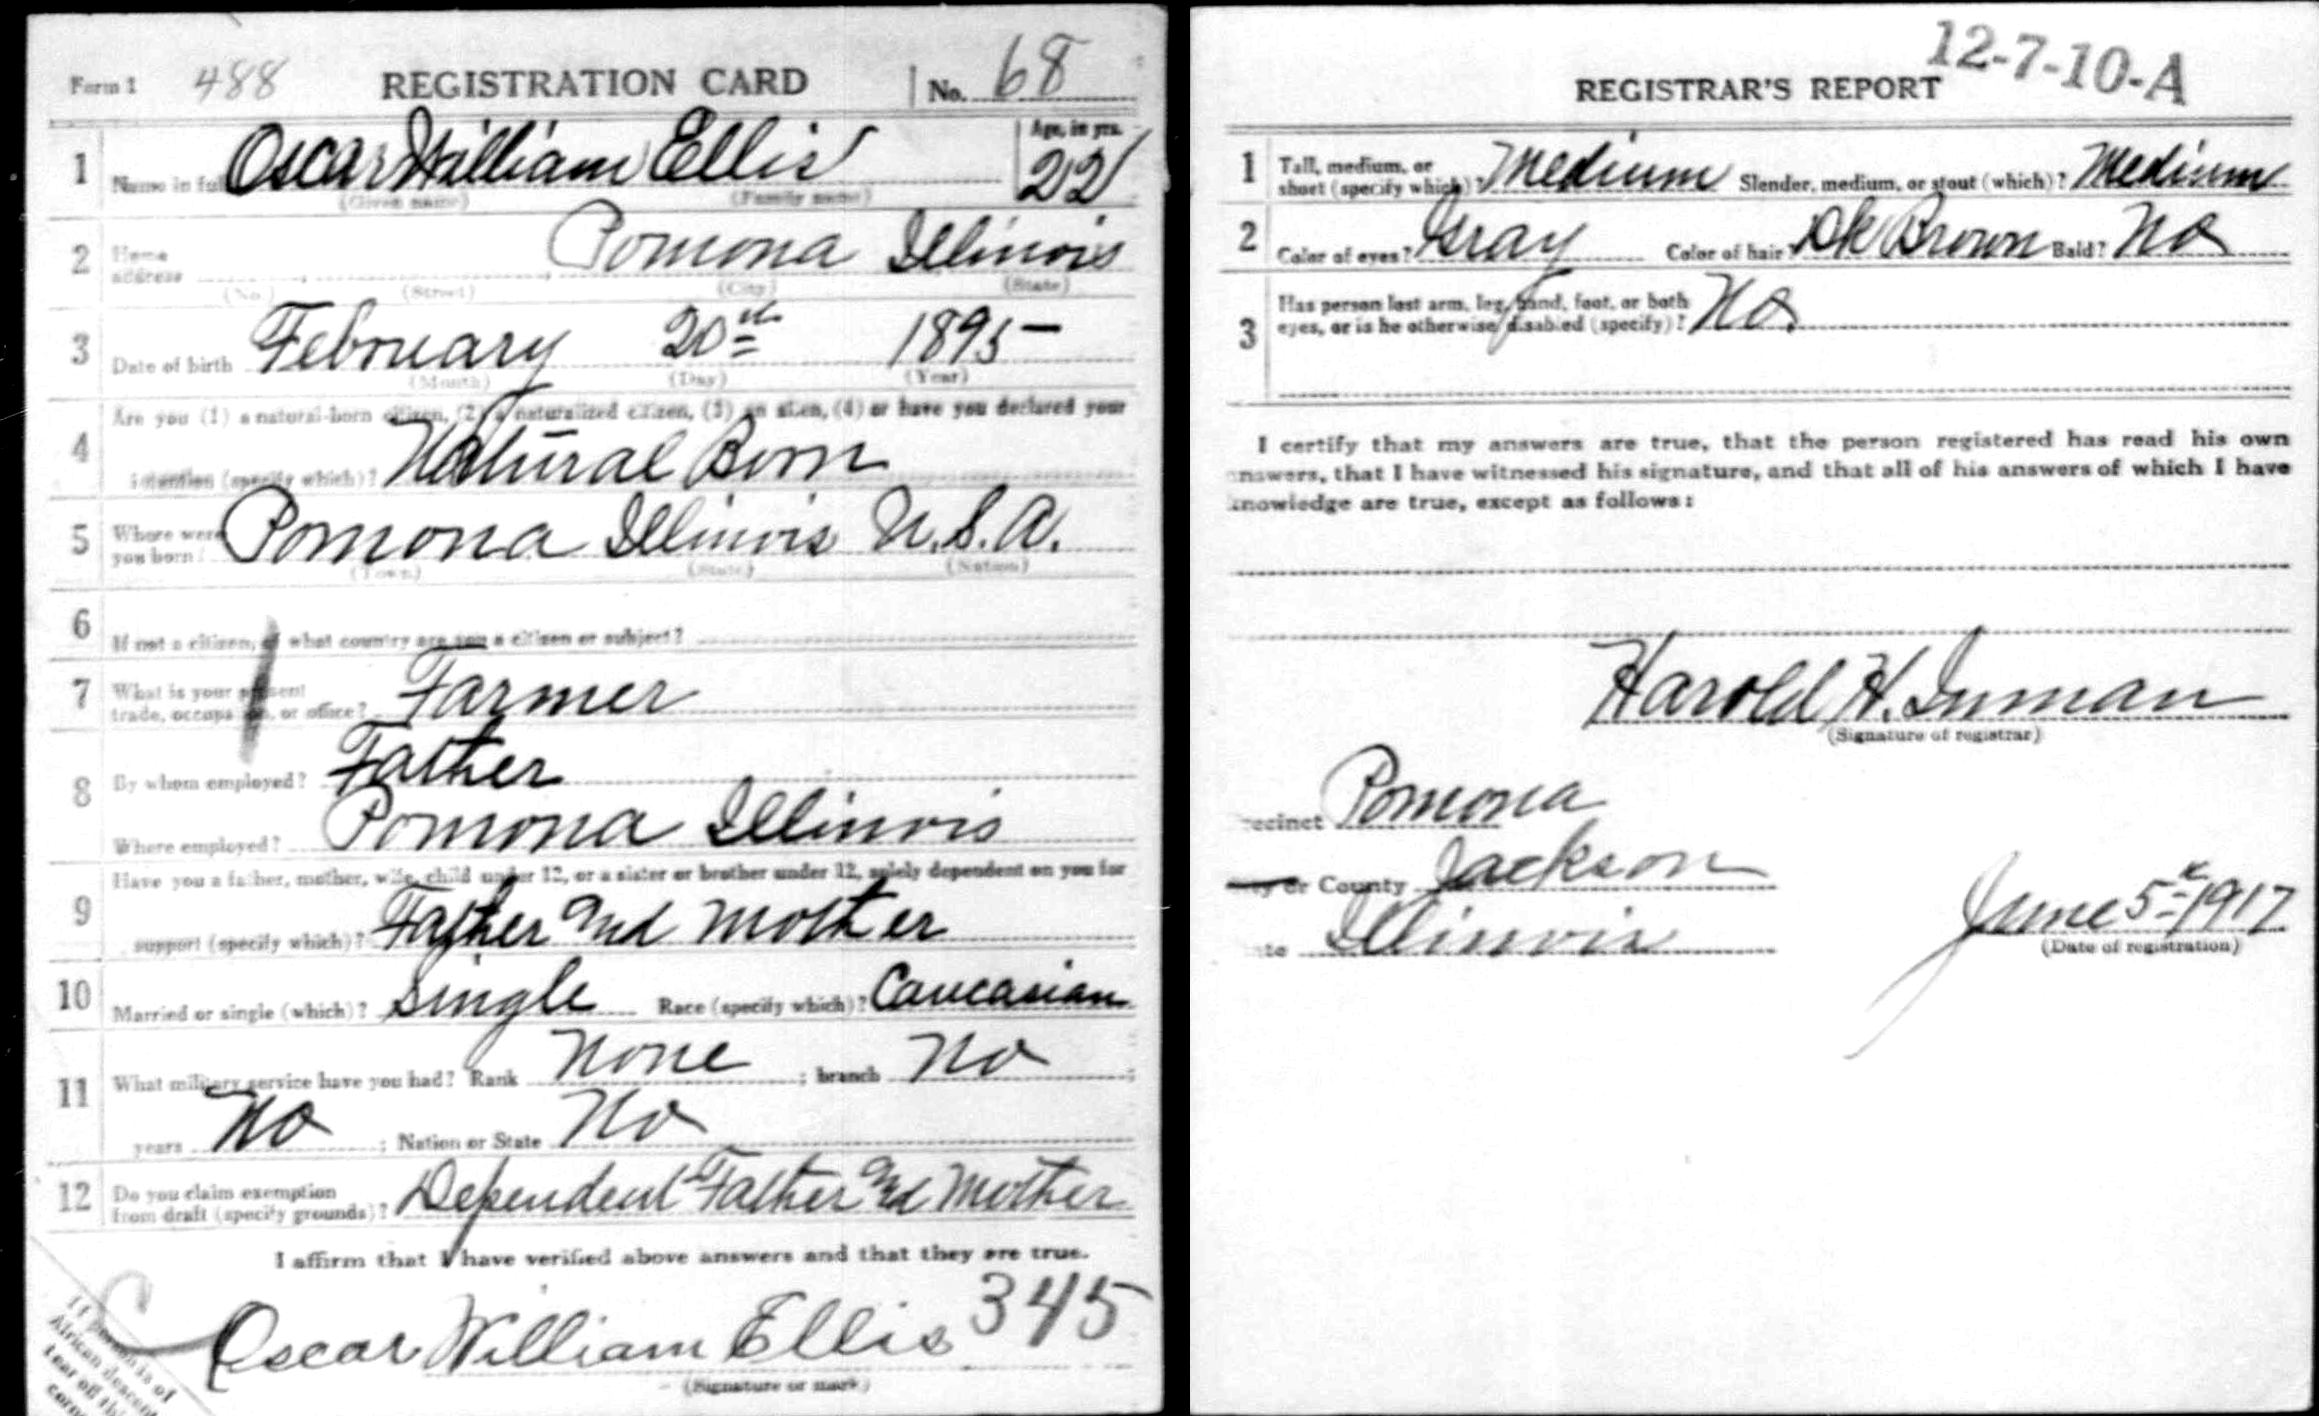 Form 1 488 REGISTRATION CARD No. 68
1 Name in full Oscar William Ellis Age, in yrs. 22
(Given name) (Family name)
2 Home address Pomona Illinois
(No.) (Street) (City) (State)
3 Date of birth February 20th 1895
(Month) (Day) (Year)
4 Are you (1) a natural-born citizen, (2) a naturalized citizen, (3) an alien, (4) or have you declared your
intention (specify which)? Natural Born
5 Where were you born? Pomona Illinois U.S.A.
(Town) (State) (Nation)
6 If not a citizen, of what country are you a citizen or subject?
7 What is your present
trade, occupation, or office? Farmer
8 By whom employed? Father
Where employed? Pomona Illinois
9 Have you a father, mother, wife, child under 12, or a sister or brother under 12, solely dependent on you for
support (specify which)? Father and Mother
10 Married or single (which)? Single Race (specify which)? Caucasian
11 What military service have you had? Rank None ; branch No ;
years No ; Nation or State No
12 Do you claim exemption
from draft (specify grounds)? Dependent Father and Mother
I affirm that I have verified above answers and that they are true.
Oscar William Ellis 345
(Signature or mark)
If person is of
African descent
tear off this
corner
12-7-10-A
REGISTRAR'S REPORT
1 Tall, medium, or
short (specify which)? Medium Slender, medium, or stout (which)? Medium
2 Color of eyes? Gray Color of hair? Dk Brown Bald? No
3 Has person lost arm, leg, hand, foot, or both
eyes, or is he otherwise disabled (specify)? No
I certify that my answers are true, that the person registered has read his own
answers, that I have witnessed his signature, and that all of his answers of which I have
knowledge are true, except as follows:
Harold H. Inman
(Signature of registrar)
Precinct Pomona
City or County Jackson
State Illinois
June 5th 1917
(Date of registration)